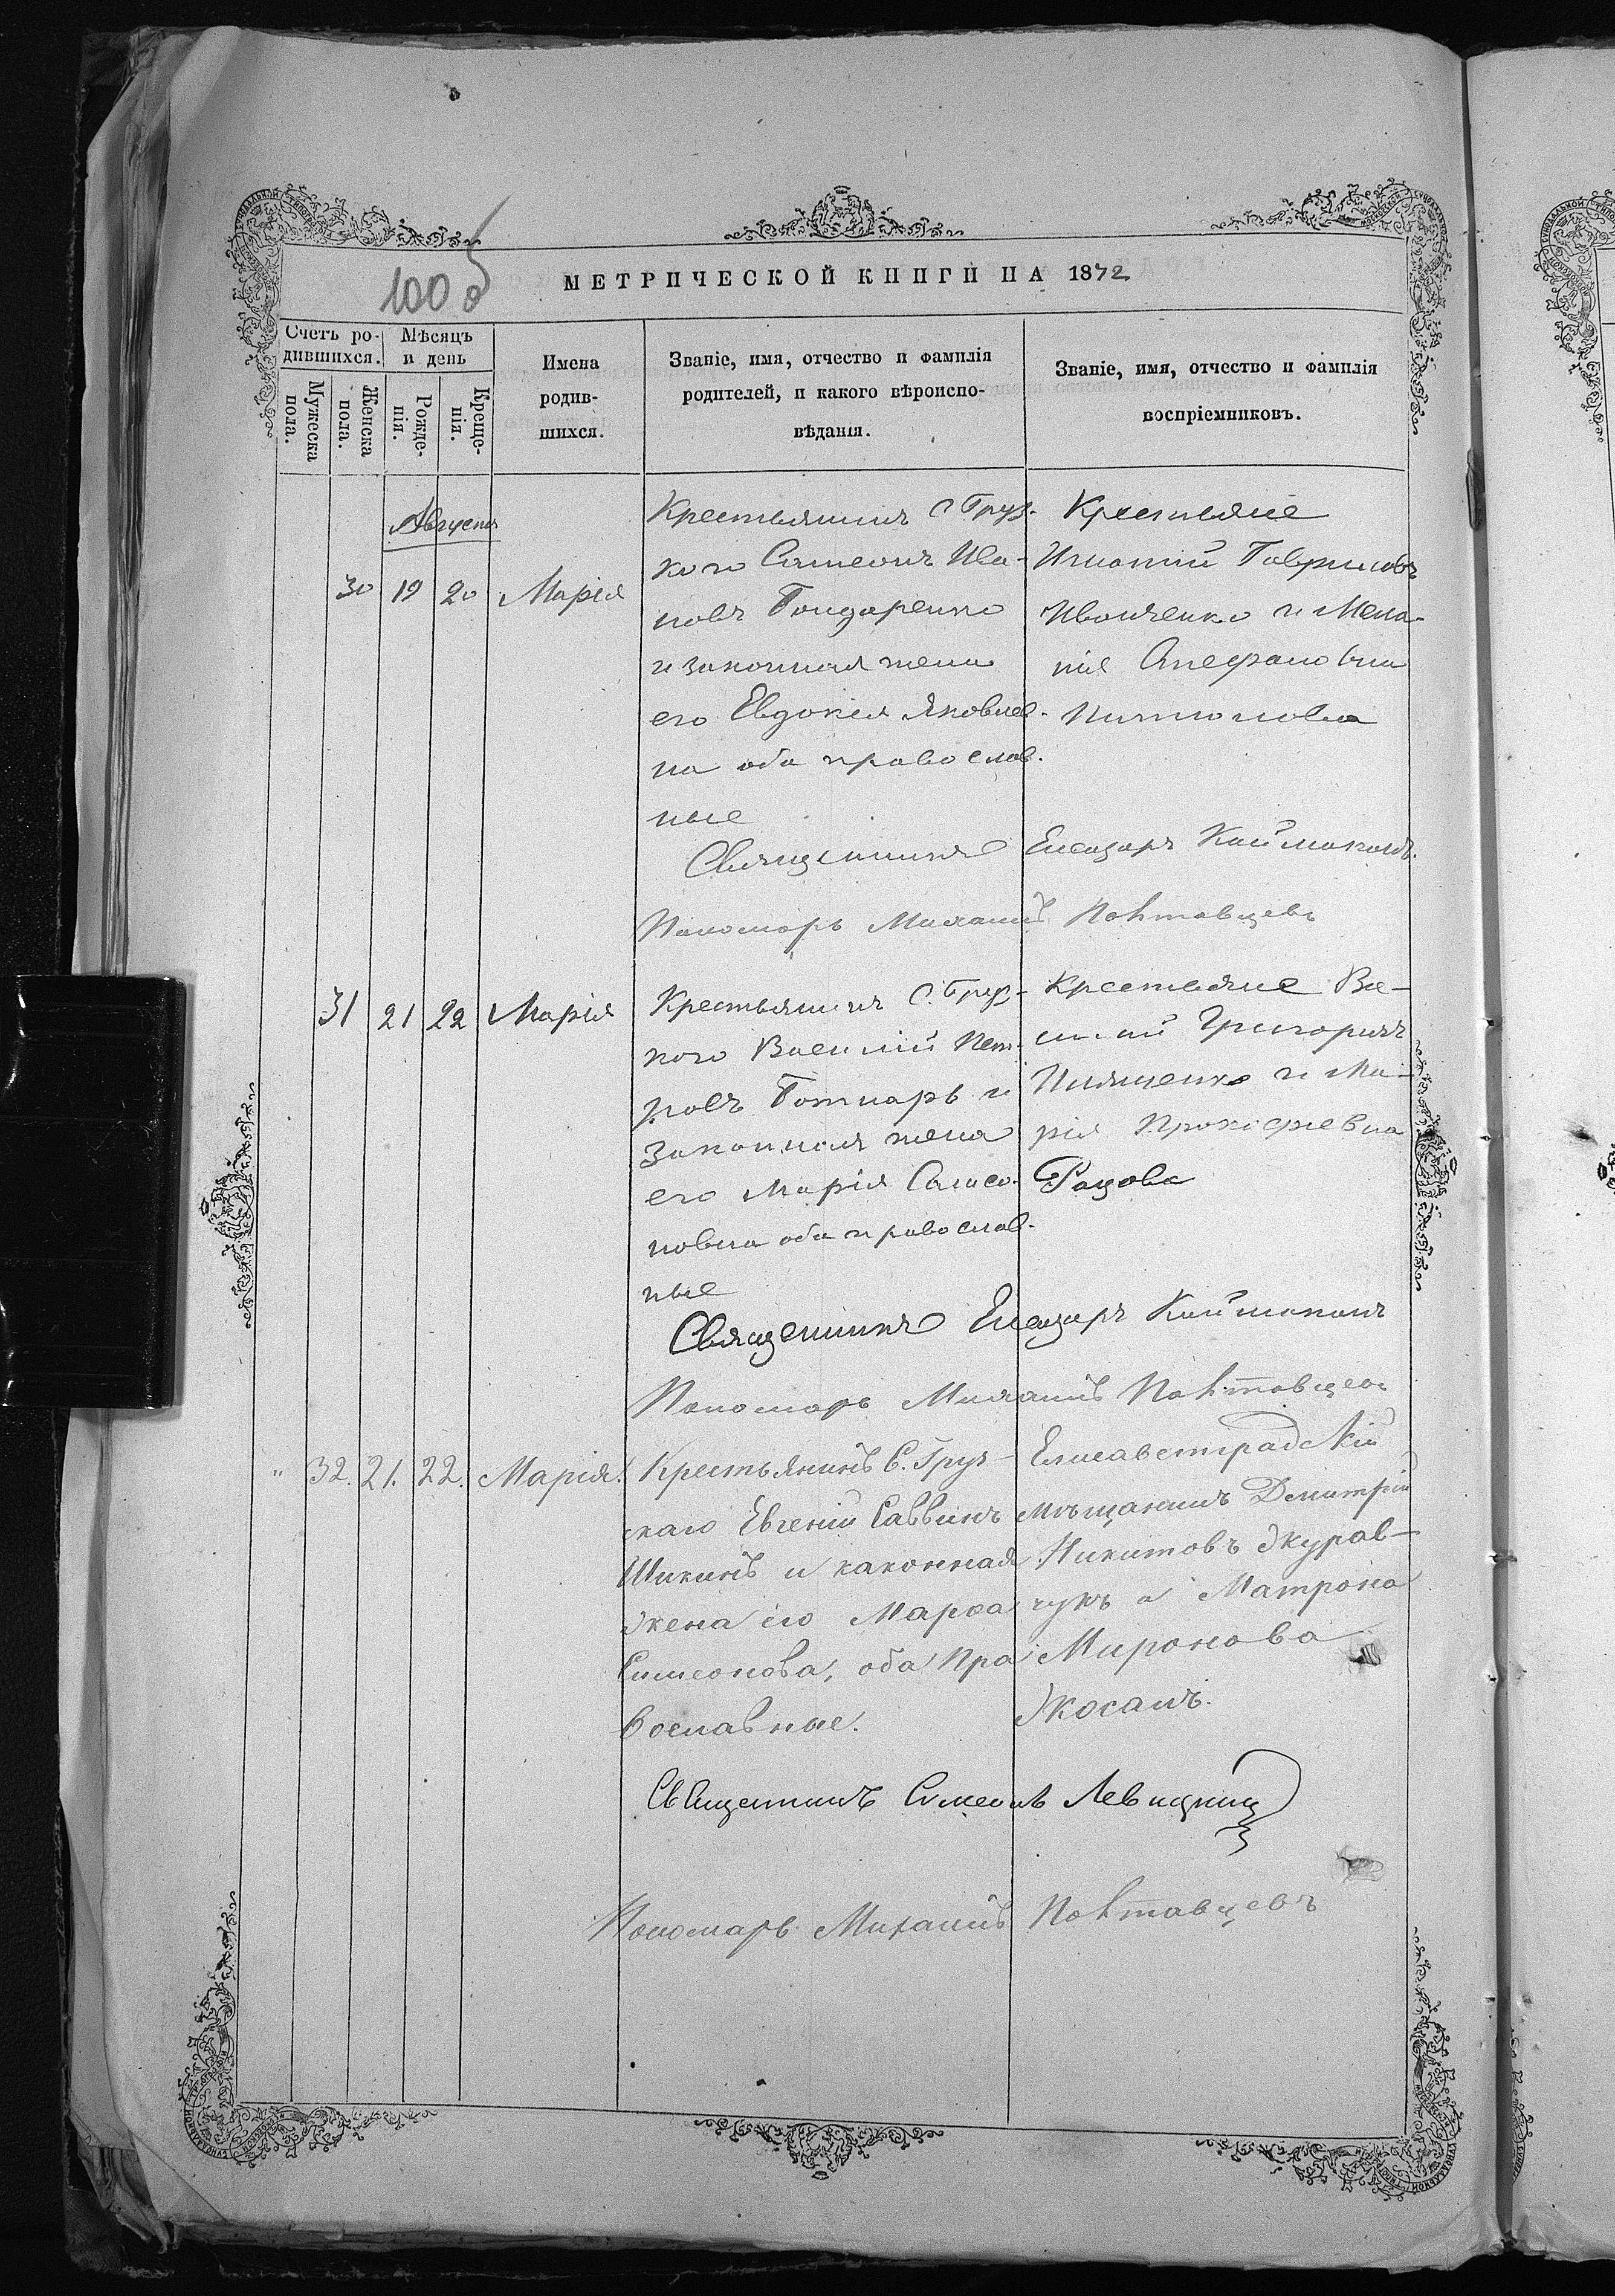 100 об
МЕТРИЧЕСКОЙ КНИГИ НА 1872
Счетъ ро-
дившихся.
Мѣсяцъ
и день
Мужеска
пола.
Женска
пола.
Рожде-
нія.
Креще-
нія.
Имена
родив-
шихся.
Званіе, имя, отчество и фамилія
родителей, и какого вѣроиспо-
вѣданія.
Званіе, имя, отчество и фамилія
воспріемниковъ.
Августъ
30 19 20 Марія
Крестьянинъ С. Груз-
кого Симеонъ Ива-
новъ Бондаренко
и законная жена
его Евдокія Яковлев-
на оба православ-
ные
Крестьяне
Игнатій Гавриловъ
Иванченко и Мела-
нія Стефановна
Священникъ Елеазаръ Каймаканъ
Пономарь Михаилъ Полтавцевъ
31 21 22 Марія
Крестьянинъ С. Груз-
кого Василій Пет-
ровъ Ботнарь и
законная жена
его Марія Симео-
новна оба православ-
ные
Крестьяне Ва-
силій Григорьевъ
и Ма-
рія Прокофіевна
Священникъ Елеазаръ Каймаканъ
Пономарь Михаилъ Полтавцевъ
" 32. 21. 22. Марія.
Крестьянинъ С. Груз-
скаго Евгеній Саввинъ
Шикинъ и законная
жена его Марѳа
Симеонова, оба Пра
вославные.
Елисаветградскій
мѣщанинъ Димитрій
Никитовъ Журав-
чукъ и Матрона
Миронова
Жосанъ.
Священникъ Симеонъ Левицкій
Пономарь Михаилъ Полтавцевъ